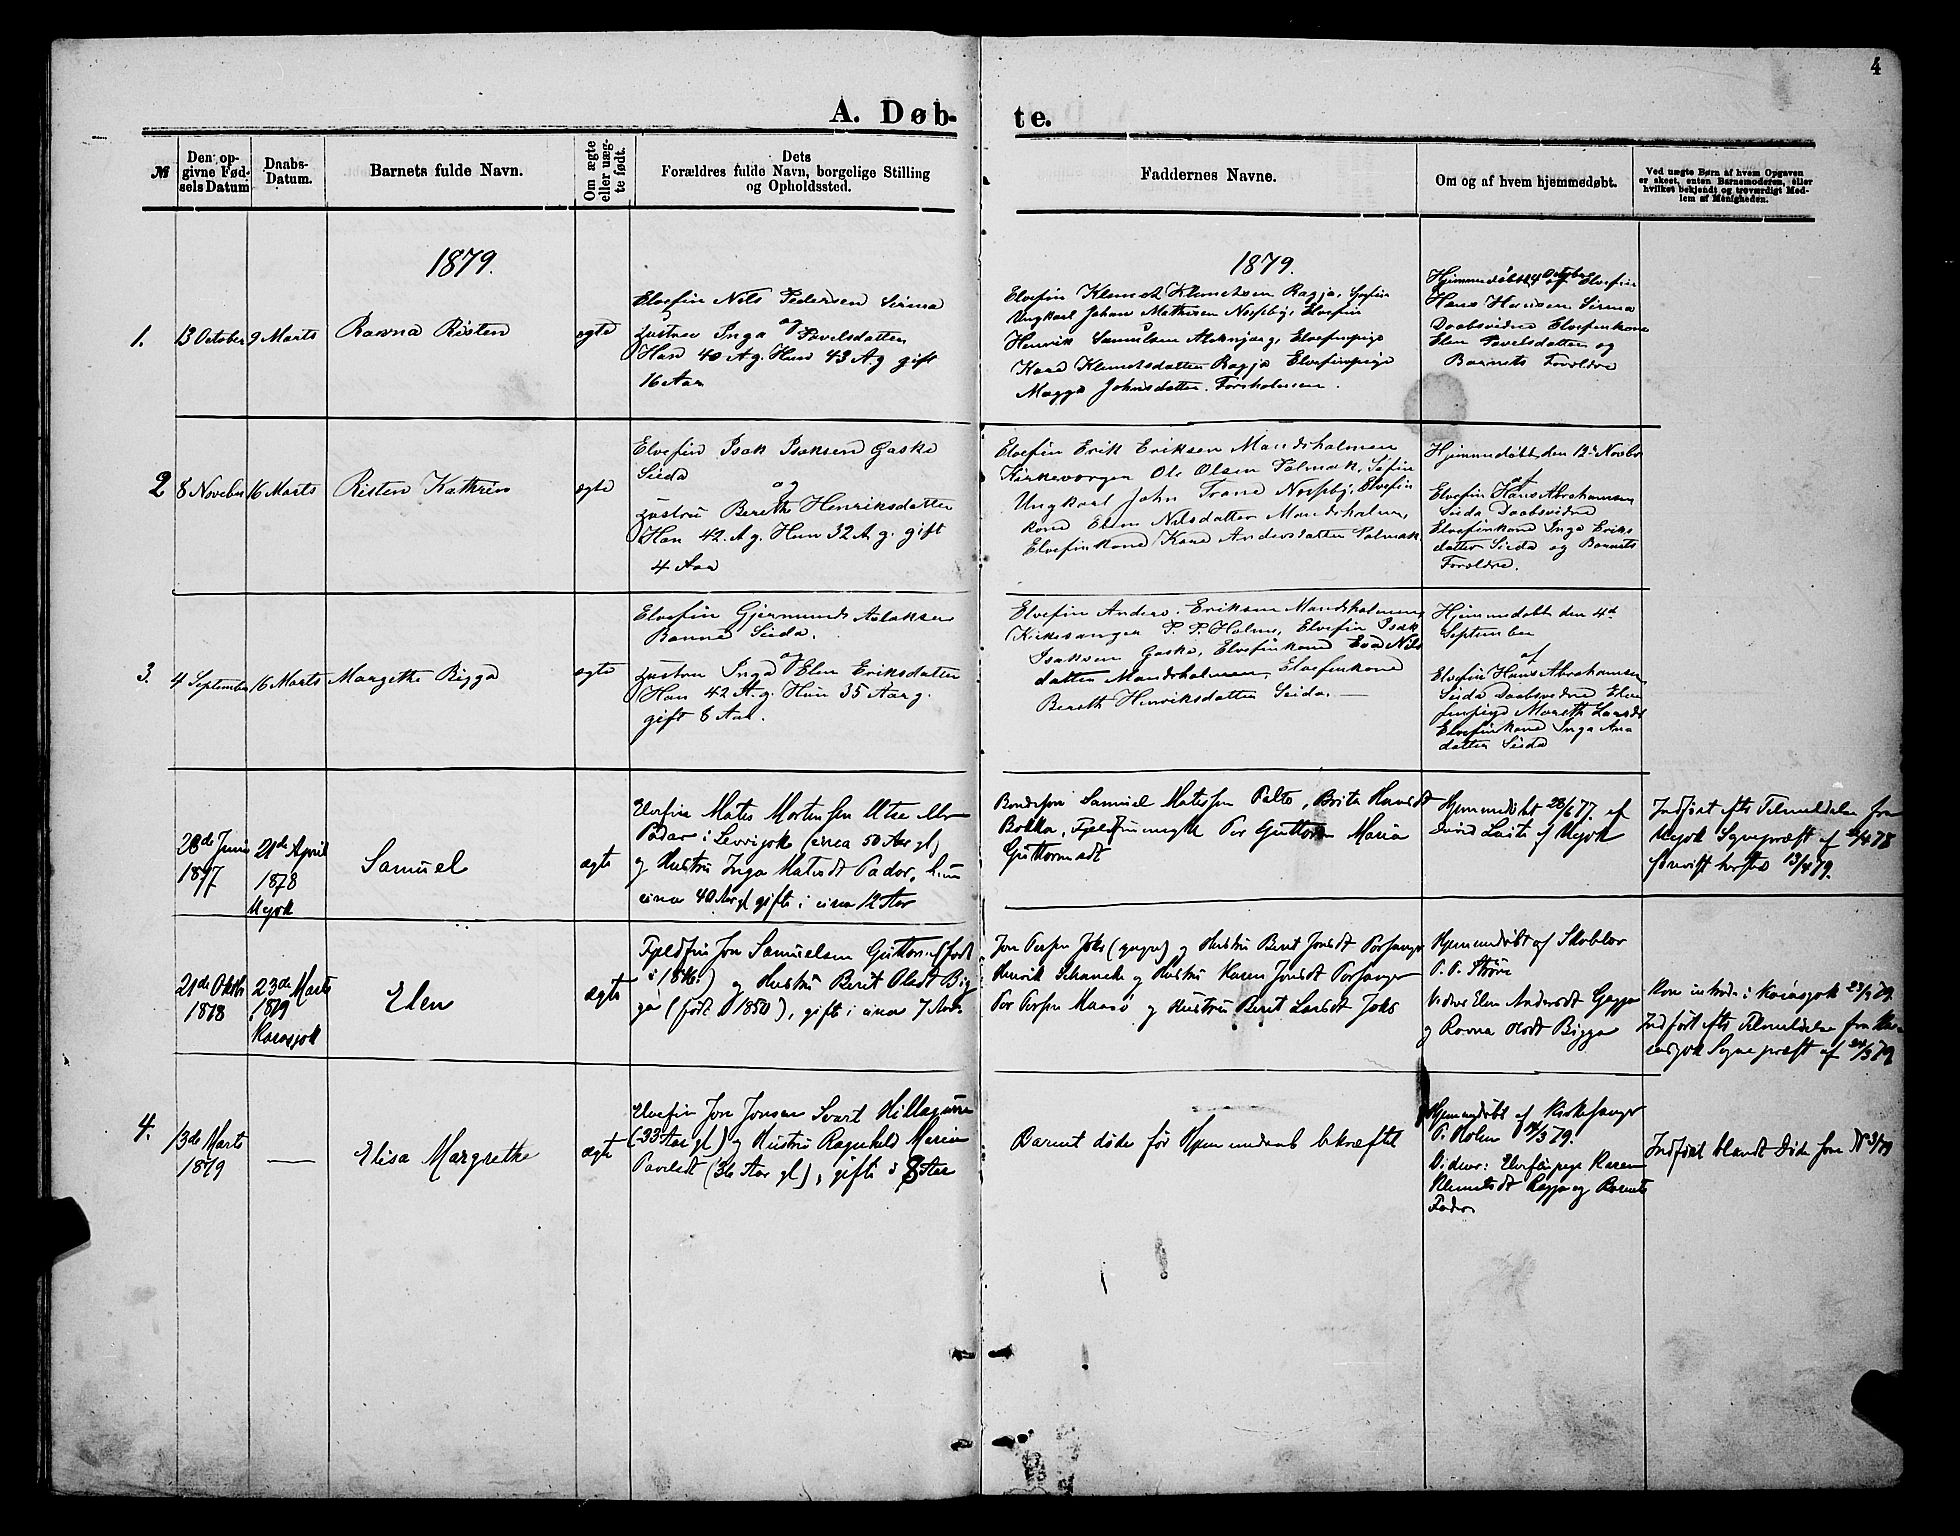 4
A. Døb-
te.
№
Den op-
givne Fød-
sels Datum
Daabs-
Datum.
Barnets fulde Navn.
Om ægte
eller uæg-
te født.
Dets
Forældres fulde Navn, borgelige Stilling
og Opholdssted.
Faddernes Navne.
Om og af hvem hjemmedøbt.
Ved uægte Børn af hvem Opgaven
er skeet, enten Barnemoderen, eller
hvilket bekjendt og troværdigt Med-
lem af Menigheden.
1879.
1879.
1.
13 October
9 Marts
Ravna Risten
egte
Elvefin Nils Pedersen Sirma
og
Hustru Inga Povelsdatter
Han 40 A g. Hun 43 A g gift
16 Aar
Elvefin Klemet Klemetsen Ragja, Søfin
Ungkarl Johan Mathisen Næsseby, Elvefin
Henrik Samulsen, Elvefinpige
Kare Klemetsdatter Ragja Elvefinpige
Magga Johnsdatter. Forsholmen.
Hjemmedøbt 24 October af Elvefin
Hans Hansen Sirma
Daabsvidne Elvefinkone
Elen Povelsdatter og
Barnets Forældre
2
8 November
16 Marts
Risten Kathrin
ægte
Elvefin Isak Isaksen Gaske
Sieda
og
Hustru Bereth Henriksdatter
Han 42. A g. Hun 32 A g. gift
4 Aar
Elvefin Erik Eriksen Mandsholmen
Kirkeværgen Ole Olsen Polmak, Søfin
Ungkarl John Trane Næsseby, Elvefin
kone Elen Nilsdatter Mandsholmen,
Elvefinkone Kare Andersdatter Polmak
Hjemmedøbt den 12te Novbr
af
Elvefin Hans Abrahamsen
Sieda Daabsvidne
Elvefinkone Inga Eriks
datter Sieda og Barnets
Forældre.
3.
4 September
16 Marts
Margethe Bigga
ægte
Elvefin Gjermund Aslaksen
Banne Sieda.
og
Hustru Inga Elen Eriksdatter
Han 42 A. g. Hun 35 Aar g.
gift 8 Aar.
Elvefin Anders Eriksen Mandsholmen,
Kirkesanger P. P. Holm, Elvefin Isak
Isaksen Gaske, Elvefinkone Eva Nils
datter Mandsholmen, Elvefinkone
Bereth Henriksdatter Sieda.
Hjemmedøbt den 4de
September
af
Elvefin Hans Abrahamsen,
Sieda Daabsvidne Elve
finpige Mareth Larsdt
Elvefinkone Inga
datter Sieda
28de Juni
1877
21de April
1878
Utsjok
Samuel
ægte
Elvefin Mates Mortensen Utse eller
Padar i Levvijok (circa 50 Aar gl)
og Hustru Inga Matisdt Pador, hun
circa 40 Aar gl gifte i circa 12 Aar
Samuel Matessen Palto, Brita Hansdt
Bokka, Per Guttorm Maria
Guttormsdt
Hjemmedøbt 28/6 77. af
Utsjok
Indført efter Tilmeldelse fra
Utsjok Sognepræst af /4 78
13/4 79.
21de Oktbr
1878
23de Marts
1879
Karasjok
Elen
ægte
Fjeldfin Jon Samuelsen Guttorm (født
i 1846) og Hustru Berit Olsdt Big
ga (født 1850), gifte i circa 7 Aar.
Jon Persen Joks (yngre) og Hustru Berit Jonsdt Porsanger
Henrik Schancke og Hustru Karen Jonsdt Porsanger
Per Persen Maasø og Hustru Berit Larsdt Joks
Hjemmedøbt af Skolelær
O. P. Strøm
Vidner Elen Andersdt Gagga
og Ravna Olsdt Bigga
Kone introd. i Karasjok 23/3 79.
Indført efter Tilmeldelse fra Kar
asjok Sognepræst af 24/3 79
4.
13de Marts
1879
—
Elisa Margrethe
ægte
Elvefin Jon Jonsen Svart Hillagurra
(33 Aar gl) og Hustru Ragnhild Maria
Pavelsdt (36 Aar gl), gifte i 8 Aar
Barnet døde før Hjemmedaab bekræftet
Hjemmedøbt af Kirkesanger
P. Holm /3 79.
Vidner: Elvefinpige Karen
Klemetsdt Ragja og Barnets
Fader
Indført blandt Døde som № 3/79